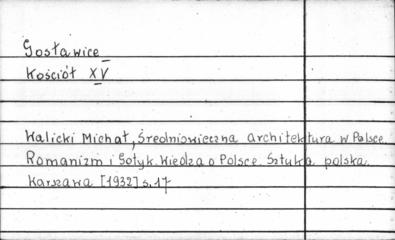 Gosławice
Kościół XV
Walicki Michał, Średniowieczna architektura w Polsce.
Romanizm i Gotyk. Wiedza o Polsce. Sztuka polska.
Warszawa [1932] s. 17